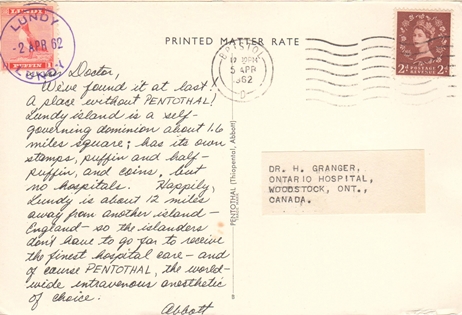 LUNDY
-2 APR 62
LUNDY
PUFFIN
PRINTED MATTER RATE
BRISTOL
5 APR
1962
D
POSTAGE
REVENUE
2d 2d
Doctor,
We've found it at last!
A place without PENTOTHAL!
Lundy island is a self-
governing dominion about 1.6
miles square; has its own
stamps, puffin and half-
puffin, and coins, but
no hospitals. Happily,
Lundy is about 12 miles
away from another island –
England – so the islanders
don't have to go far to receive
the finest hospital care – and
of course PENTOTHAL, the world-
wide intravenous anesthetic
of choice.
Abbott
PENTOTHAL (Thiopental, Abbott)
DR. H. GRANGER,
ONTARIO HOSPITAL,
WOODSTOCK, ONT.,
CANADA.